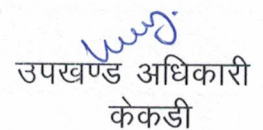 उपखण्ड अधिकारी
केकडी